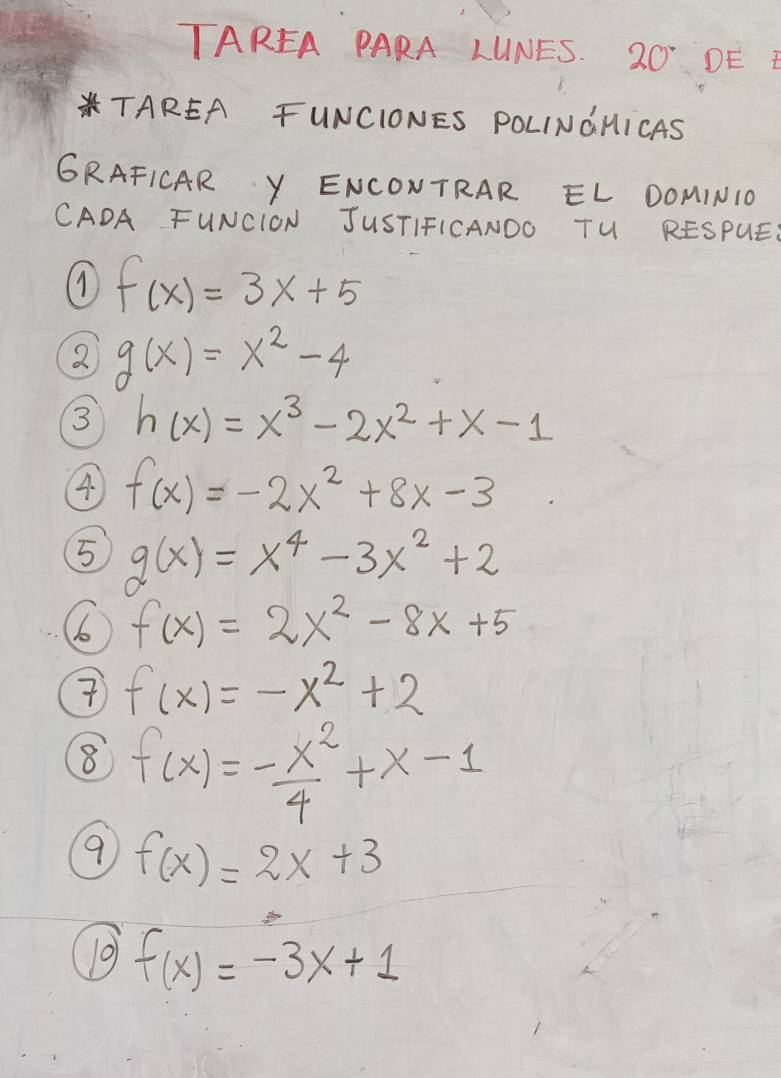 TAREA PARA LUNES. 20 DE E
* TAREA FUNCIONES POLINÓMICAS
GRAFICAR Y ENCONTRAR EL DOMINIO
CADA FUNCION JUSTIFICANDO TU RESPUES
① f(x) = 3x + 5
② g(x) = x² - 4
③ h(x) = x³ - 2x² + x - 1
④ f(x) = -2x² + 8x - 3
⑤ g(x) = x⁴ - 3x² + 2
⑥ f(x) = 2x² - 8x + 5
⑦ f(x) = -x² + 2
⑧ f(x) = -x²/4 + x - 1
⑨ f(x) = 2x + 3
⑩ f(x) = -3x + 1